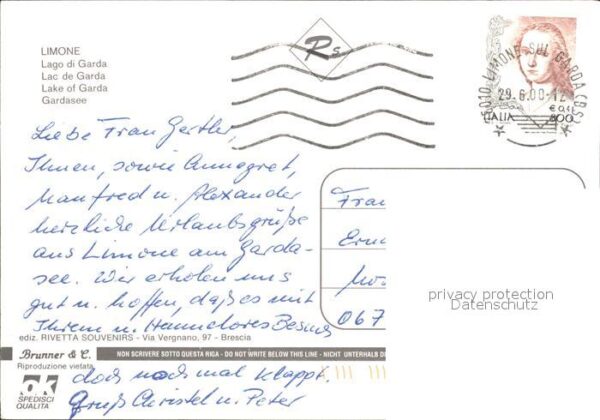 LIMONE
Lago di Garda
Lac de Garda
Lake of Garda
Gardasee
Rs
LIMONE SUL GARDA (BS)
29.6.00-12
ITALIA
€ 0,41
800
Liebe Frau Gertler,
Ihnen, sowie Annegret,
Manfred u. Alexander
herzliche Urlaubsgrüße
aus Limone am Garda-
see. Wir erholen uns
gut u. hoffen, daß es mit
Ihrem u. Hannelores Besuch
doch nochmal klappt.
Gruß Christel u. Peter
Frau
067
privacy protection
Datenschutz
ediz. RIVETTA SOUVENIRS - Via Vergnano, 97 - Brescia
Brunner & C.
Riproduzione vietata
NON SCRIVERE SOTTO QUESTA RIGA - DO NOT WRITE BELOW THIS LINE - NICHT UNTERHALB DI
SPEDISCI
QUALITÀ